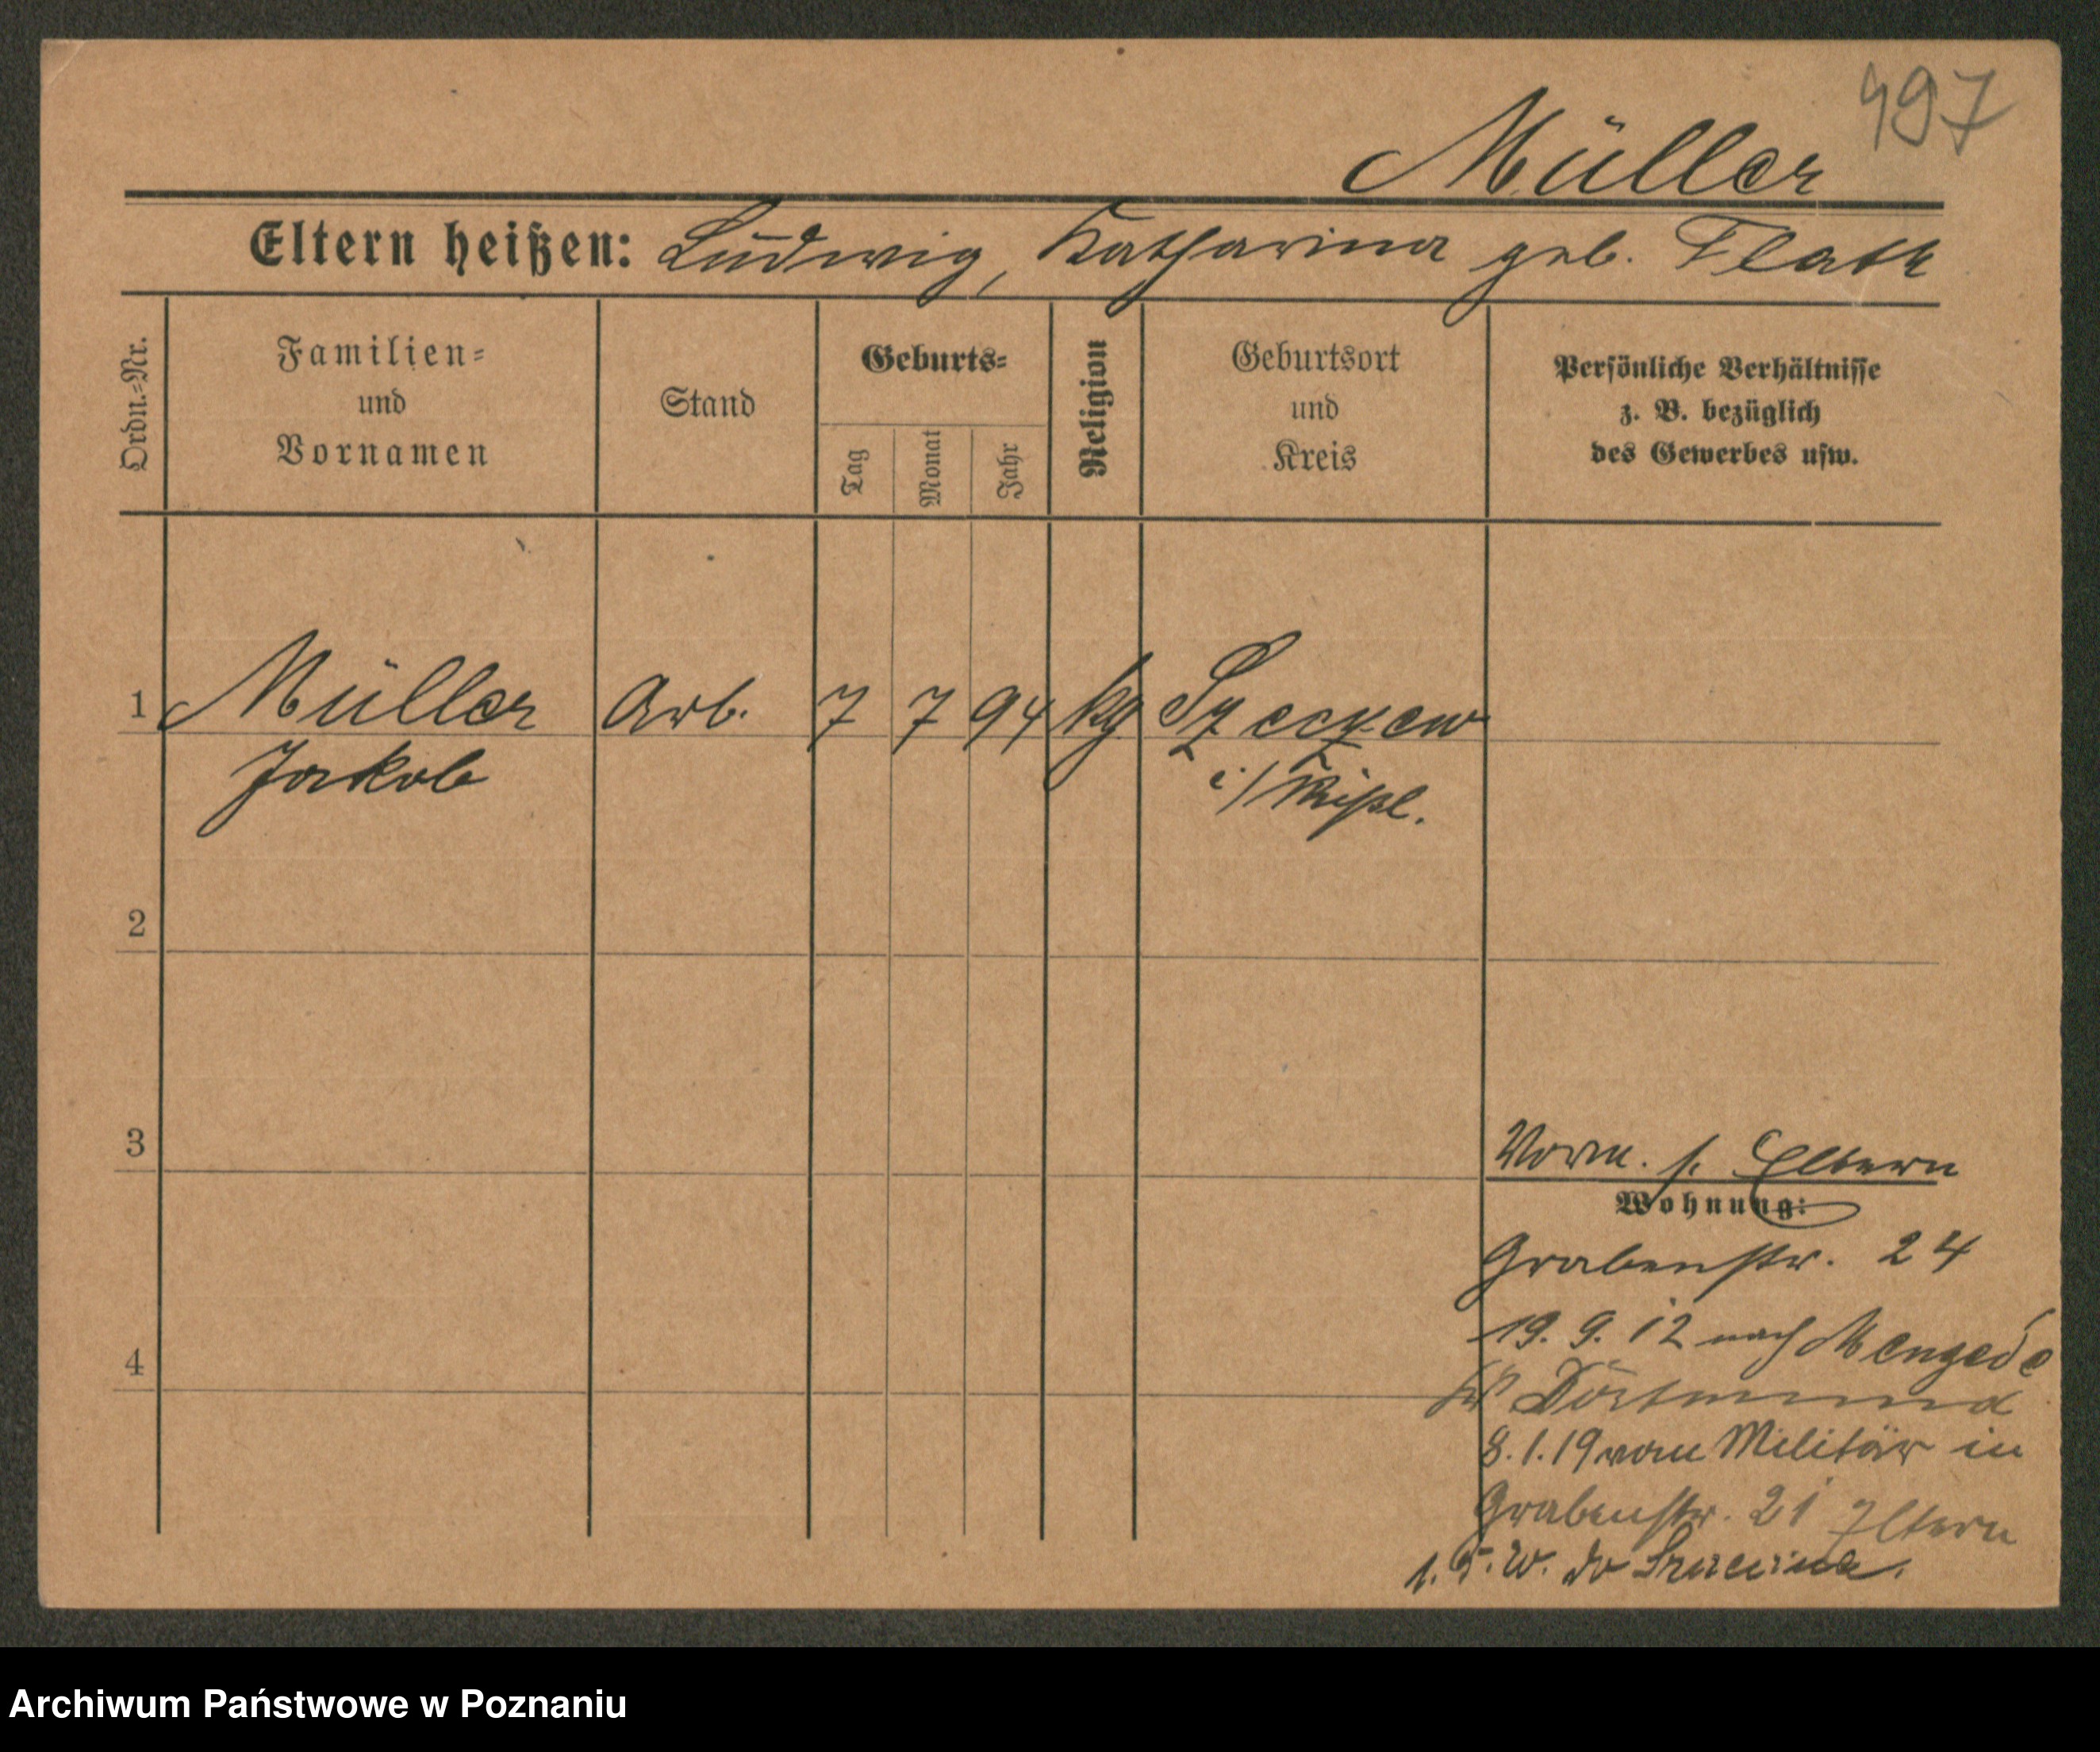 497
Müller
Eltern heißen: Ludwig, Katharina geb. Flath
Ordn.=Nr.
Familien=
und
Vornamen
Stand
Geburts=
Tag
Monat
Jahr
Religion
Geburtsort
und
Kreis
Persönliche Verhältnisse
z. B. bezüglich
des Gewerbes usw.
1 Müller Arb. 7 7 94
Jakob
i/
2
3
Vorm. s. Eltern
Wohnung:
Grabenstr. 24
19. 9. 12 nach Mengede
4
Dortmund
8. 1. 19 vom Militär in
Grabenstr. 21 Eltern
do
Archiwum Państwowe w Poznaniu